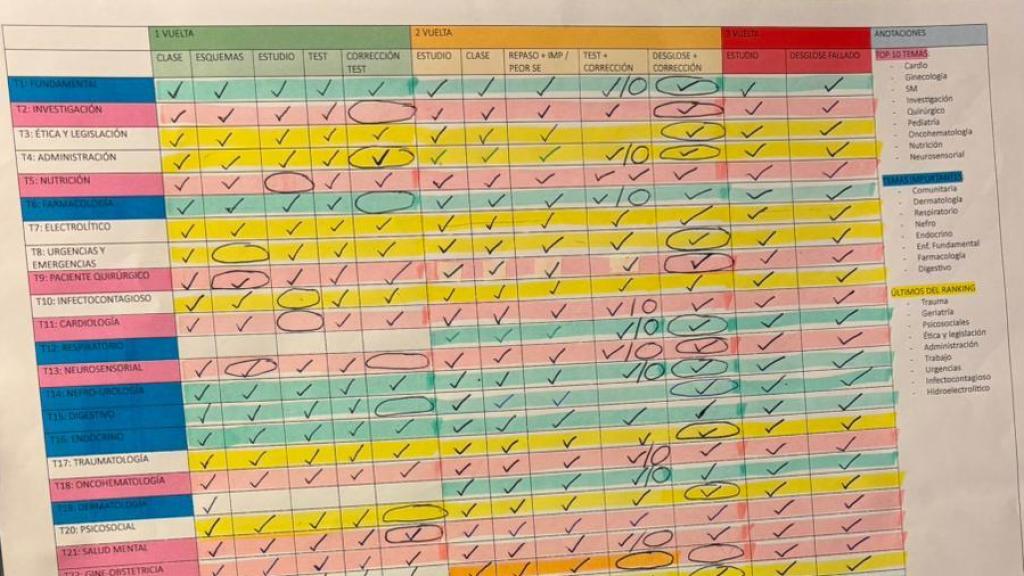 1 VUELTA 2 VUELTA 3 VUELTA ANOTACIONES
CLASE ESQUEMAS ESTUDIO TEST CORRECCIÓN TEST ESTUDIO CLASE REPASO + IMP / PEOR SE TEST + CORRECCIÓN DESGLOSE + CORRECCIÓN ESTUDIO DESGLOSE FALLADO
TOP 10 TEMAS
- Cardio
- Ginecología
- SM
- Investigación
- Quirúrgico
- Pediatría
- Oncohematología
- Nutrición
- Neurosensorial
TEMAS IMPORTANTES
- Comunitaria
- Dermatología
- Respiratorio
- Nefro
- Endocrino
- Enf. Fundamental
- Farmacología
- Digestivo
ÚLTIMOS DEL RANKING
- Trauma
- Geriatría
- Psicosociales
- Ética y legislación
- Administración
- Trabajo
- Urgencias
- Infectocontagioso
- Hidroelectrolítico
T1: FUNDAMENTAL
T2: INVESTIGACIÓN
T3: ÉTICA Y LEGISLACIÓN
T4: ADMINISTRACIÓN
T5: NUTRICIÓN
T6: FARMACOLOGÍA
T7: ELECTROLÍTICO
T8: URGENCIAS Y
EMERGENCIAS
T9: PACIENTE QUIRÚRGICO
T10: INFECTOCONTAGIOSO
T11: CARDIOLOGÍA
T12: RESPIRATORIO
T13: NEUROSENSORIAL
T14: NEFRO-UROLOGÍA
T15: DIGESTIVO
T16: ENDOCRINO
T17: TRAUMATOLOGÍA
T18: ONCOHEMATOLOGÍA
T19: DERMATOLOGÍA
T20: PSICOSOCIAL
T21: SALUD MENTAL
T22: GINE-OBSTETRICIA